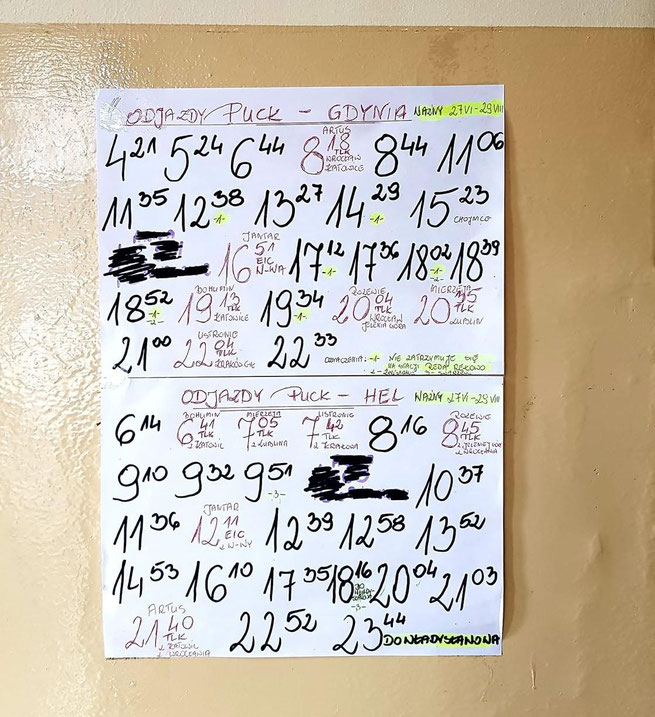 ODJAZDY PUCK - GDYNIA WAŻNY 27 VI - 29 VIII
4 21 5 24 6 44 ARTUS 8 18 TLK WROCŁAW KATOWICE 8 44 11 06
11 35 12 38 -1- 13 27 14 29 -1- 15 23 CHOJNICE
JANTAR 16 51 EIC W-WA 17 12 -1- 17 36 18 02 -1- -2- 18 39
18 52 -1- -2- BOHUMIN 19 13 TLK KATOWICE 19 34 -1- ROZEWIE 20 04 TLK WROCŁAW JELENIA GÓRA MIERZEJA 20 TLK LUBLIN
21 00 USTRONIE 22 04 TLK KRAKÓW 22 33 OZNACZENIA: -1- NIE ZATRZYMUJE SIĘ
NA STACJI REDA REKOWO
ODJAZDY PUCK - HEL WAŻNY 27 VI - 29 VIII
6 14 BOHUMIN 6 41 TLK Z KATOWIC MIERZEJA 7 05 TLK Z LUBLINA USTRONIE 7 42 TLK Z KRAKOWA 8 16 ROZEWIE 8 45 TLK Z JELENIEJ GÓRY Z WROCŁAWIA
9 10 9 32 9 51 -3- 10 37
11 36 JANTAR 12 11 EIC Z W-WY 12 39 12 58 13 52
14 53 16 10 17 35 18 16 -3- 20 04 21 03
ARTUS 21 40 TLK Z KATOWIC Z WROCŁAWIA 22 52 23 44 DO WŁADYSŁAWOWA